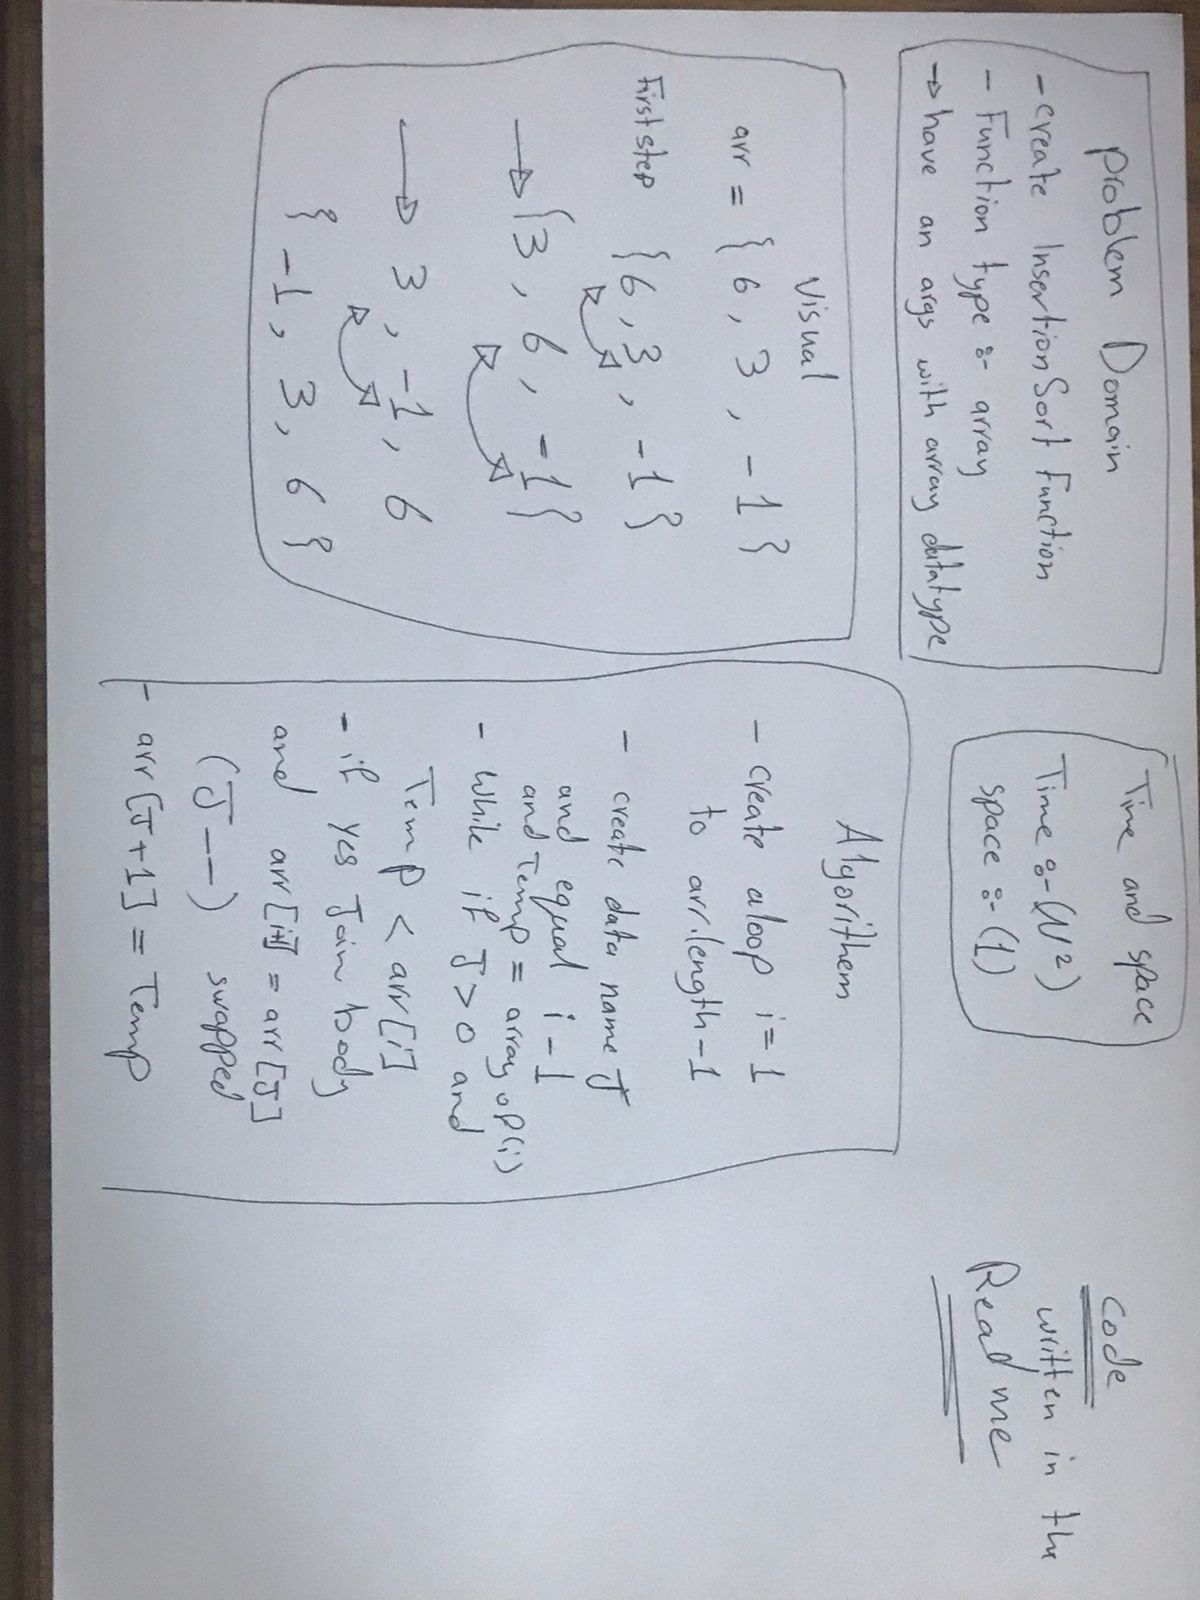 Problem Domain
- create InsertionSort Function
- Function type :- array
→ have an args with array datatype
Visual
arr = { 6 , 3 , -1 }
First step {6 , 3 , -1 }
→ {3 , 6 , -1 }
→ 3 , -1 , 6
{ -1 , 3 , 6 }
Time and space
Time :- (N²)
space :- (1)
Algorithem
- create a loop i = 1
to arr.length - 1
- create data name J
and equal i - 1
and Temp = array of (i)
- while if J > 0 and
Temp < arr[i]
- if yes Join body
and arr[ ] = arr[J]
(J--) swapped
- arr[J+1] = Temp
Code
written in the
Read me